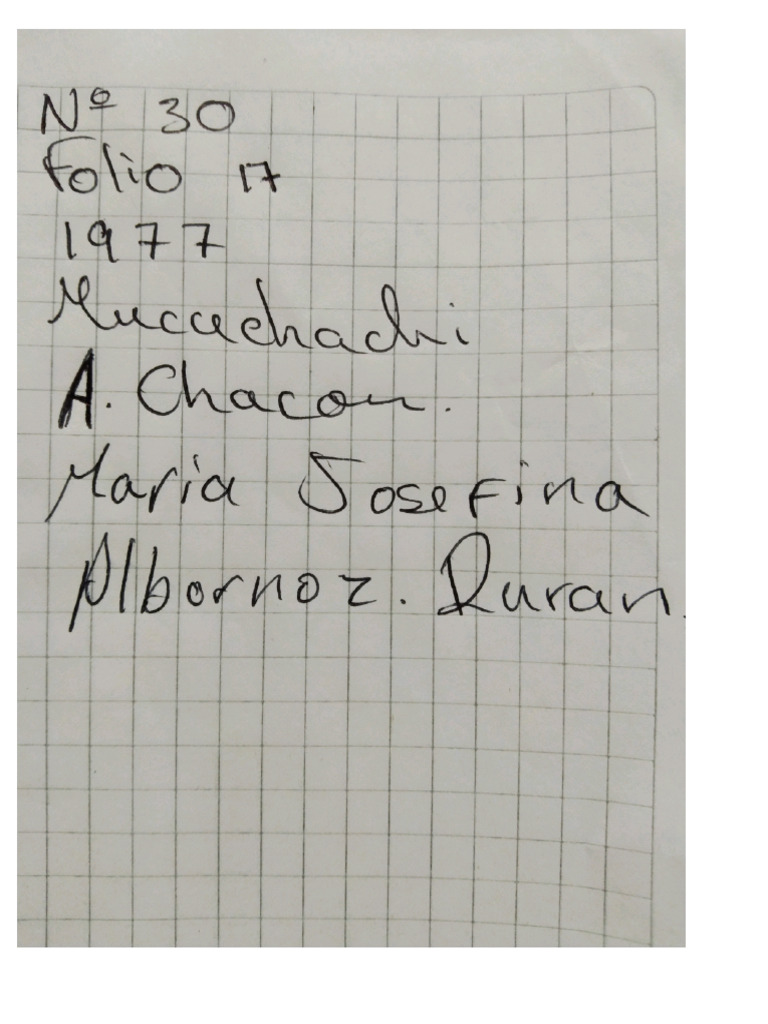 Nº 30
Folio 17
1977
Mucuchachi
A. Chacon.
Maria Josefina
Albornoz. Duran.